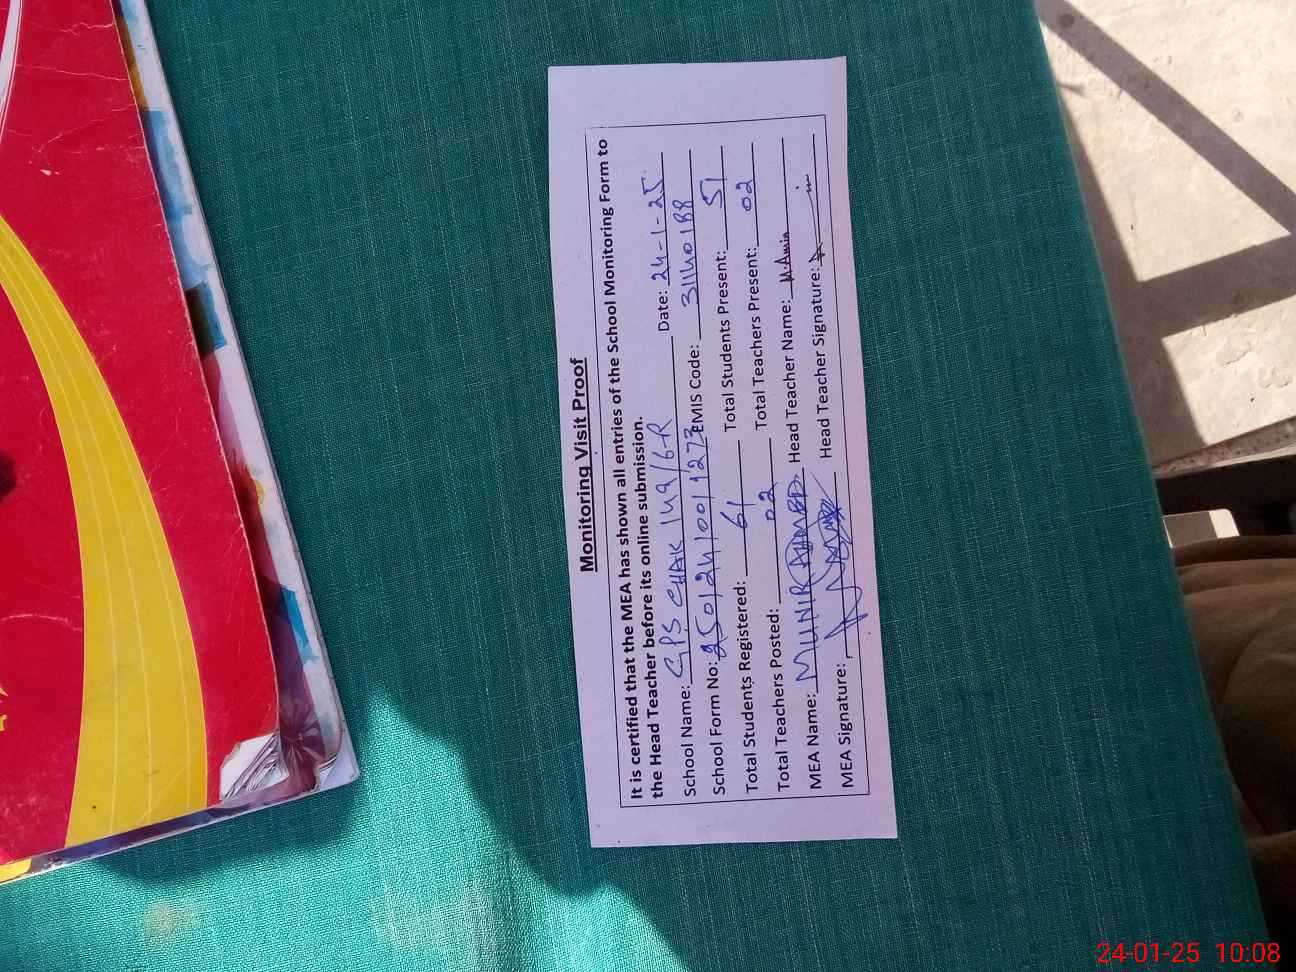 Monitoring Visit Proof
It is certified that the MEA has shown all entries of the School Monitoring Form to
the Head Teacher before its online submission.
School Name: GPS CHAK 149/6-R Date: 24-1-25
School Form No: 2501241001273 EMIS Code: 31140188
Total Students Registered: 61 Total Students Present: 51
Total Teachers Posted: 02 Total Teachers Present: 02
MEA Name: MUNIR AHMED Head Teacher Name: M.Amin
MEA Signature: Head Teacher Signature:
24-01-25 10:08